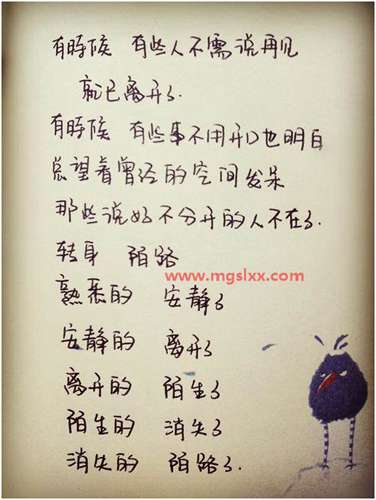 有時候 有些人不需说再见
就已离开了.
有時候 有些事不用开口也明白
总望着曾经的空间发呆
那些说好不分开的人不在了.
转身 陌路
www.mgslxx.com
熟悉的 安静了
安静的 离开了
离开的 陌生了
陌生的 消失了
消失的 陌路了.